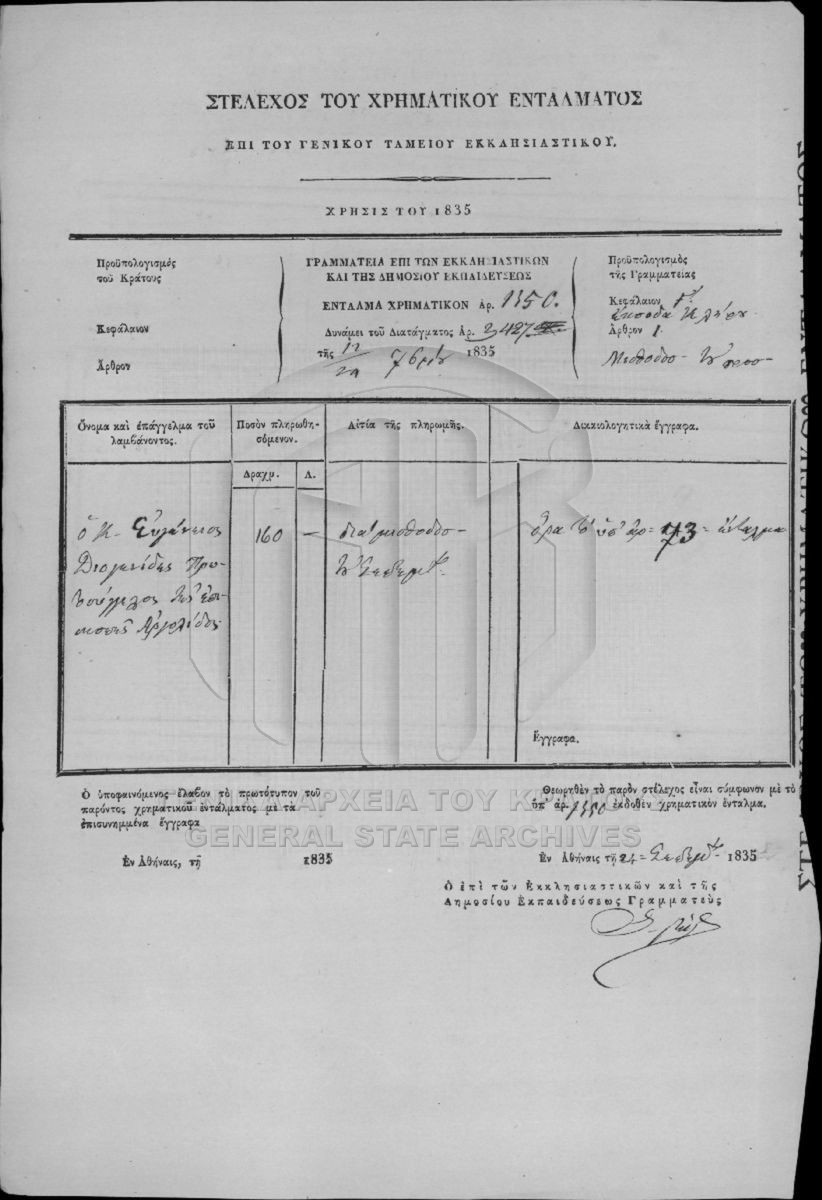 ΣΤΕΛΕΧΟΣ ΤΟΥ ΧΡΗΜΑΤΙΚΟΥ ΕΝΤΑΛΜΑΤΟΣ
ΕΠΙ ΤΟΥ ΓΕΝΙΚΟΥ ΤΑΜΕΙΟΥ ΕΚΚΛΗΣΙΑΣΤΙΚΟΥ.
ΧΡΗΣΙΣ ΤΟΥ 1835
Προϋπολογισμός
τοῦ Κράτους
Κεφάλαιον
Ἄρθρον
ΓΡΑΜΜΑΤΕΙΑ ΕΠΙ ΤΩΝ ΕΚΚΛΗΣΙΑΣΤΙΚΩΝ
ΚΑΙ ΤΗΣ ΔΗΜΟΣΙΟΥ ΕΚΠΑΙΔΕΥΣΕΩΣ
ΕΝΤΑΛΜΑ ΧΡΗΜΑΤΙΚΟΝ Αρ. 1350.
Δυνάμει τοῦ Διατάγματος Αρ. 2427
τῆς 7βρίου 1835
Προϋπολογισμὸς
τῆς Γραμματείας
Κεφάλαιον Γ
Ἔξοδα Κλήρου
Ἄρθρον 1.
Ὄνομα καὶ ἐπάγγελμα τοῦ
λαμβάνοντος.
Ποσὸν πληρωθη-
σόμενον.
Δραχμ. Λ.
Αἰτία τῆς πληρωμῆς.
Δικαιολογητικὰ ἔγγραφα.
ὁ Κ. Εὐγένιος
Διογενίδης Πρω-
τοσύγγελος τῆς ἐπι-
σκοπῆς Ἀργολίδος
160 —
διὰ μισθοδο-
ὅρα τ' ὑπ' ἀρ= 73= ἔνταλμα
Ἔγγραφα.
Ο ὑποφαινόμενος ἔλαβον τὸ πρωτότυπον τοῦ
παρόντος χρηματικοῦ ἐντάλματος μὲ τὰ
ἐπισυνημμένα ἔγγραφα
Ἐν Ἀθήναις, τῇ 1835
Θεωρηθὲν τὸ παρὸν στέλεχος εἶναι σύμφωνον μὲ τὸ
ὑπ' ἀρ. 1350 ἐκδοθὲν χρηματικὸν ἔνταλμα.
Ἐν Ἀθήναις τῇ 1835
Ο ἐπὶ τῶν Ἐκκλησιαστικῶν καὶ τῆς
Δημοσίου Ἐκπαιδεύσεως Γραμματεὺς
ΓΕΝΙΚΑ ΑΡΧΕΙΑ ΤΟΥ ΚΡΑΤΟΥΣ
GENERAL STATE ARCHIVES